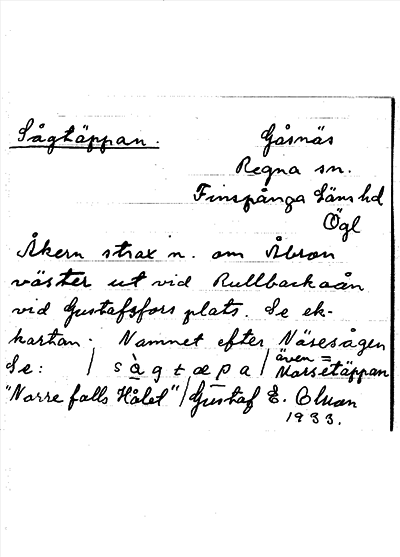 Sågtäppan. Gåsnäs
Regna sn.
Finspånga Läns hd
Ögl
Åkern strax n. om Åbron
väster ut vid Rullbackaån
vid Gustafsfors plats. Se ek-
kartan. Namnet efter Näsesågen
Se: / sågtæpa / även =
Norsetäppan
"Norre falls Hålet" / Gustaf E. Olson
1933.